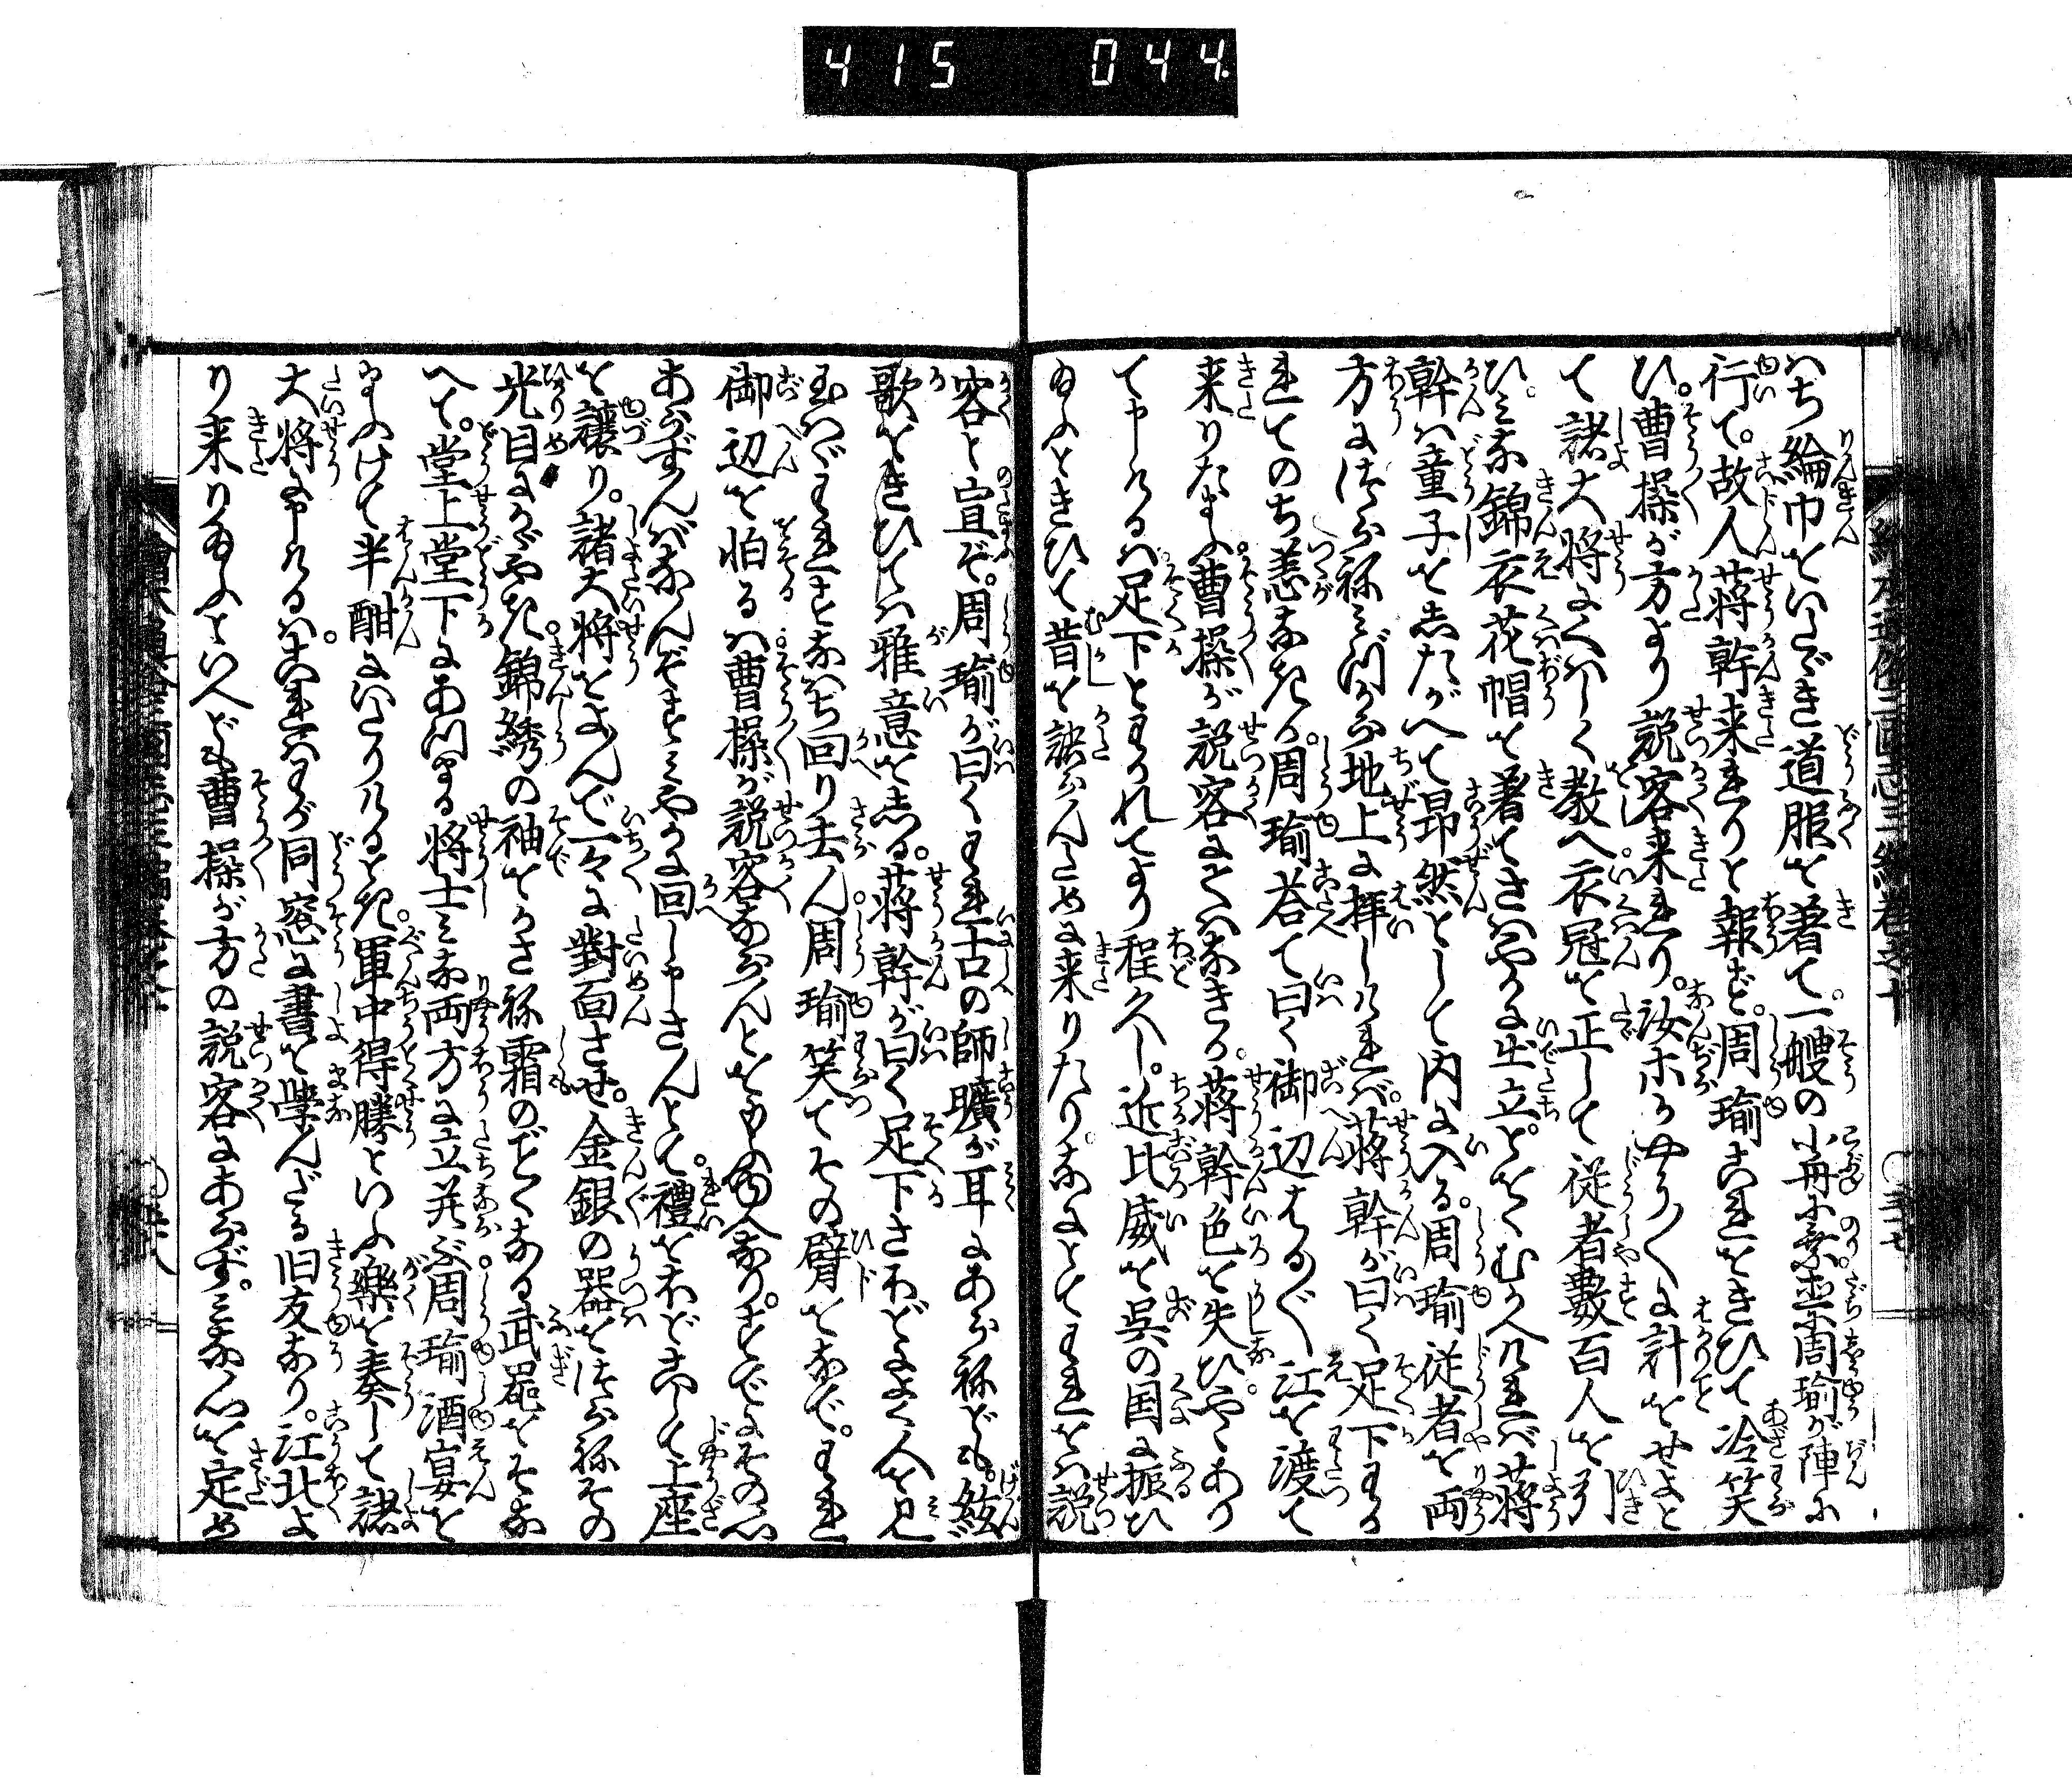 415 044
はち綸巾をいたゞき道服を着て。一艘の小舟に乗並周瑜が陣に
行て。故人蒋幹来れりと報ず。周瑜これをきひて冷笑
ひ。曹操が方より説客来れり。汝ホかやう〱に計をせよと
て諸大将によくはしく教へ衣冠を正して従者數百人を引
ひ。みな錦衣花帽を著てさはやかに出立。をくむかへければ蒋
幹は童子をしたがへて昂然として内に入る。周瑜従者を両
方につらねみづから地上に拝しければ。蒋幹が曰く足下わか
れてのち恙なきか。周瑜答て曰く御辺はる〲江を渡て
来りたまふ。曹操が説客にてはなきか。蒋幹色を失ひ。やゝあり
て申けるは足下とわかれてより程久し。近比威を呉の国に振ひ
給ふときひて昔を訣らんために来りたり。なにとてわれをは説
客と宣ぞ。周瑜が曰くわれ古の師曠が耳にあらねども。絃
歌をきひては雅意をしる。蒋幹が曰く足下さほどよく人を見
玉はゞわれさとなはち回り去ん周瑜笑てその臂をなで。われ
御辺を怕るは曹操が説客ならんとをもふ為なり。すでにその心
あらずんばなんぞすみやかに回し申さんとて。禮をほどこして上座
を譲り。諸大将をよんで一々に對面させ。金銀の器をつらねその
光目にかゞやき。錦綉の袖をかさね霜のごとくなる武器をそな
へて。堂上堂下にあつまる将士みな両方に立并ぶ周瑜酒宴を
まふけて半酣にいたりけるとき。軍中得勝といふ樂を奏して諸
大将に申けるは。これはわが同窓に書を学んだる旧友なり。江北よ
り来り給ふといへども曹操が方の説客にあらず。みな心を定め